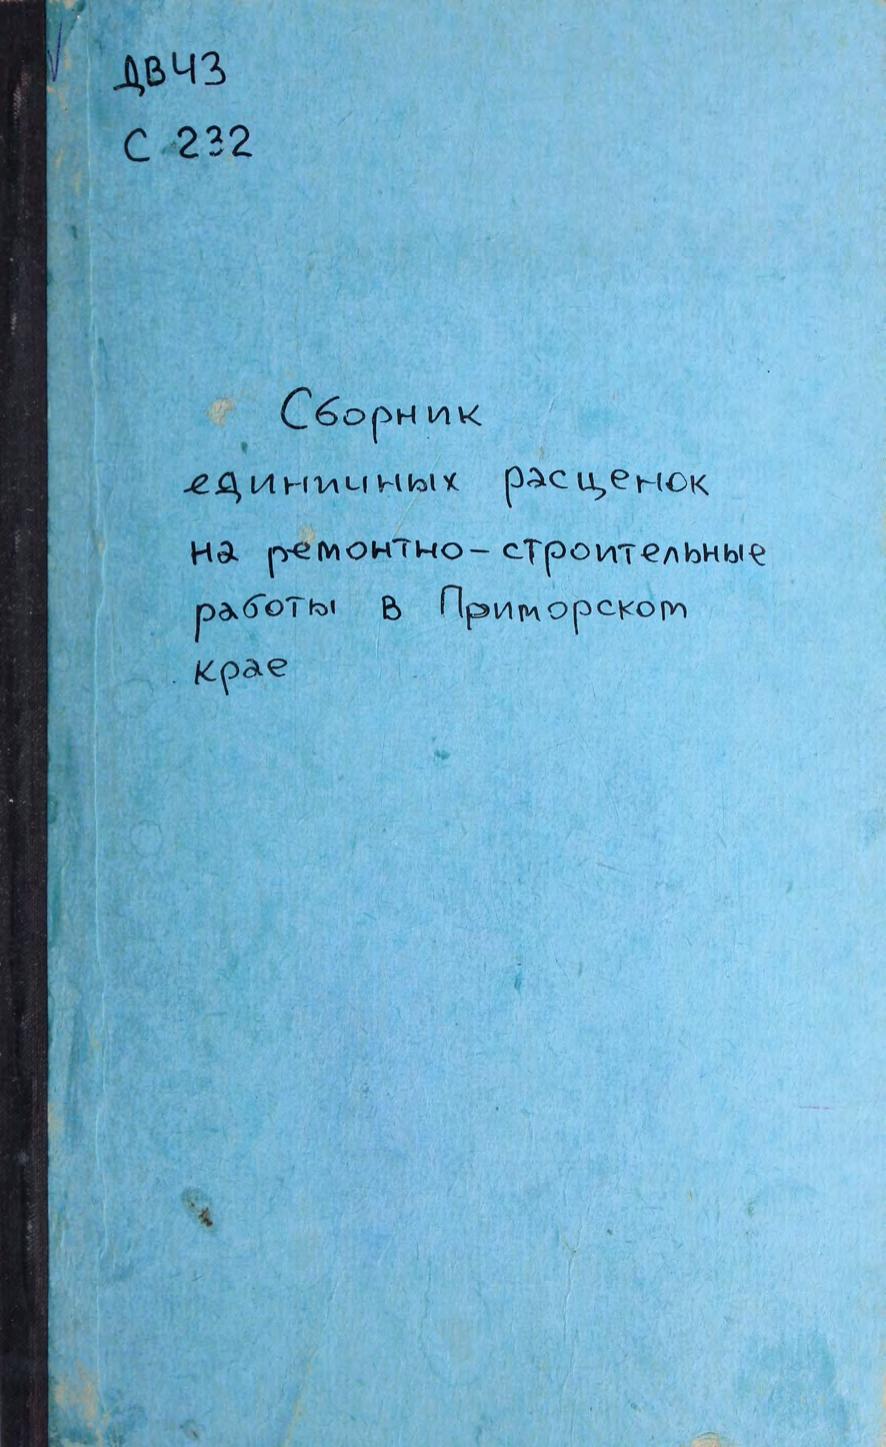 ДВЧЗ
С 232
Сборник
единичных расценок
на ремонтно-строительные
работы в Приморском
крае